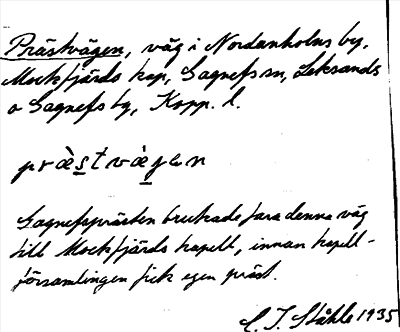 Prästvägen, väg i Nordanholns by,
Mockfjärds kap, Gagnefs sn, Leksands
o Gagnefs bg, Kopp. l.
præ̀stvæ̀gɩn
Gagnefsprästen brukade fara denna väg
till Mockfjärds kapell, innan kapell-
församlingen fick egen präst.
C. I. Ståhle 1935